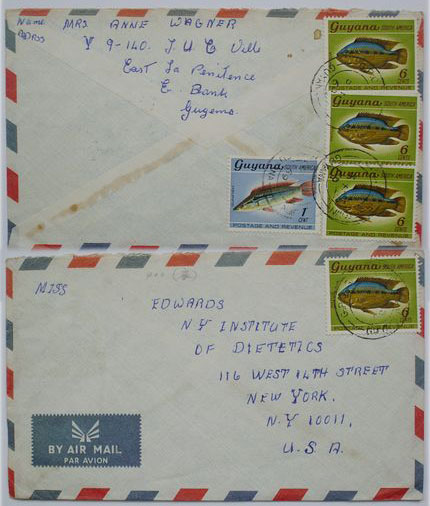 Name MRS. ANNE WAGNER
V 9-140. T U C Ville
East La Penitence
E. Bank
Guyana
Guyana SOUTH AMERICA
6 CENTS
POSTAGE AND REVENUE
Guyana SOUTH AMERICA
6 CENTS
Guyana SOUTH AMERICA
6 CENTS
POSTAGE AND REVENUE
Guyana SOUTH AMERICA
1 CENT
POSTAGE AND REVENUE
Guyana SOUTH AMERICA
6 CENTS
POSTAGE AND REVENUE
MISS
EDWARDS
N Y INSTITUTE
OF DIETETICS
116 WEST 14TH STREET
NEW YORK.
N.Y 10011,
U. S. A.
BY AIR MAIL
PAR AVION